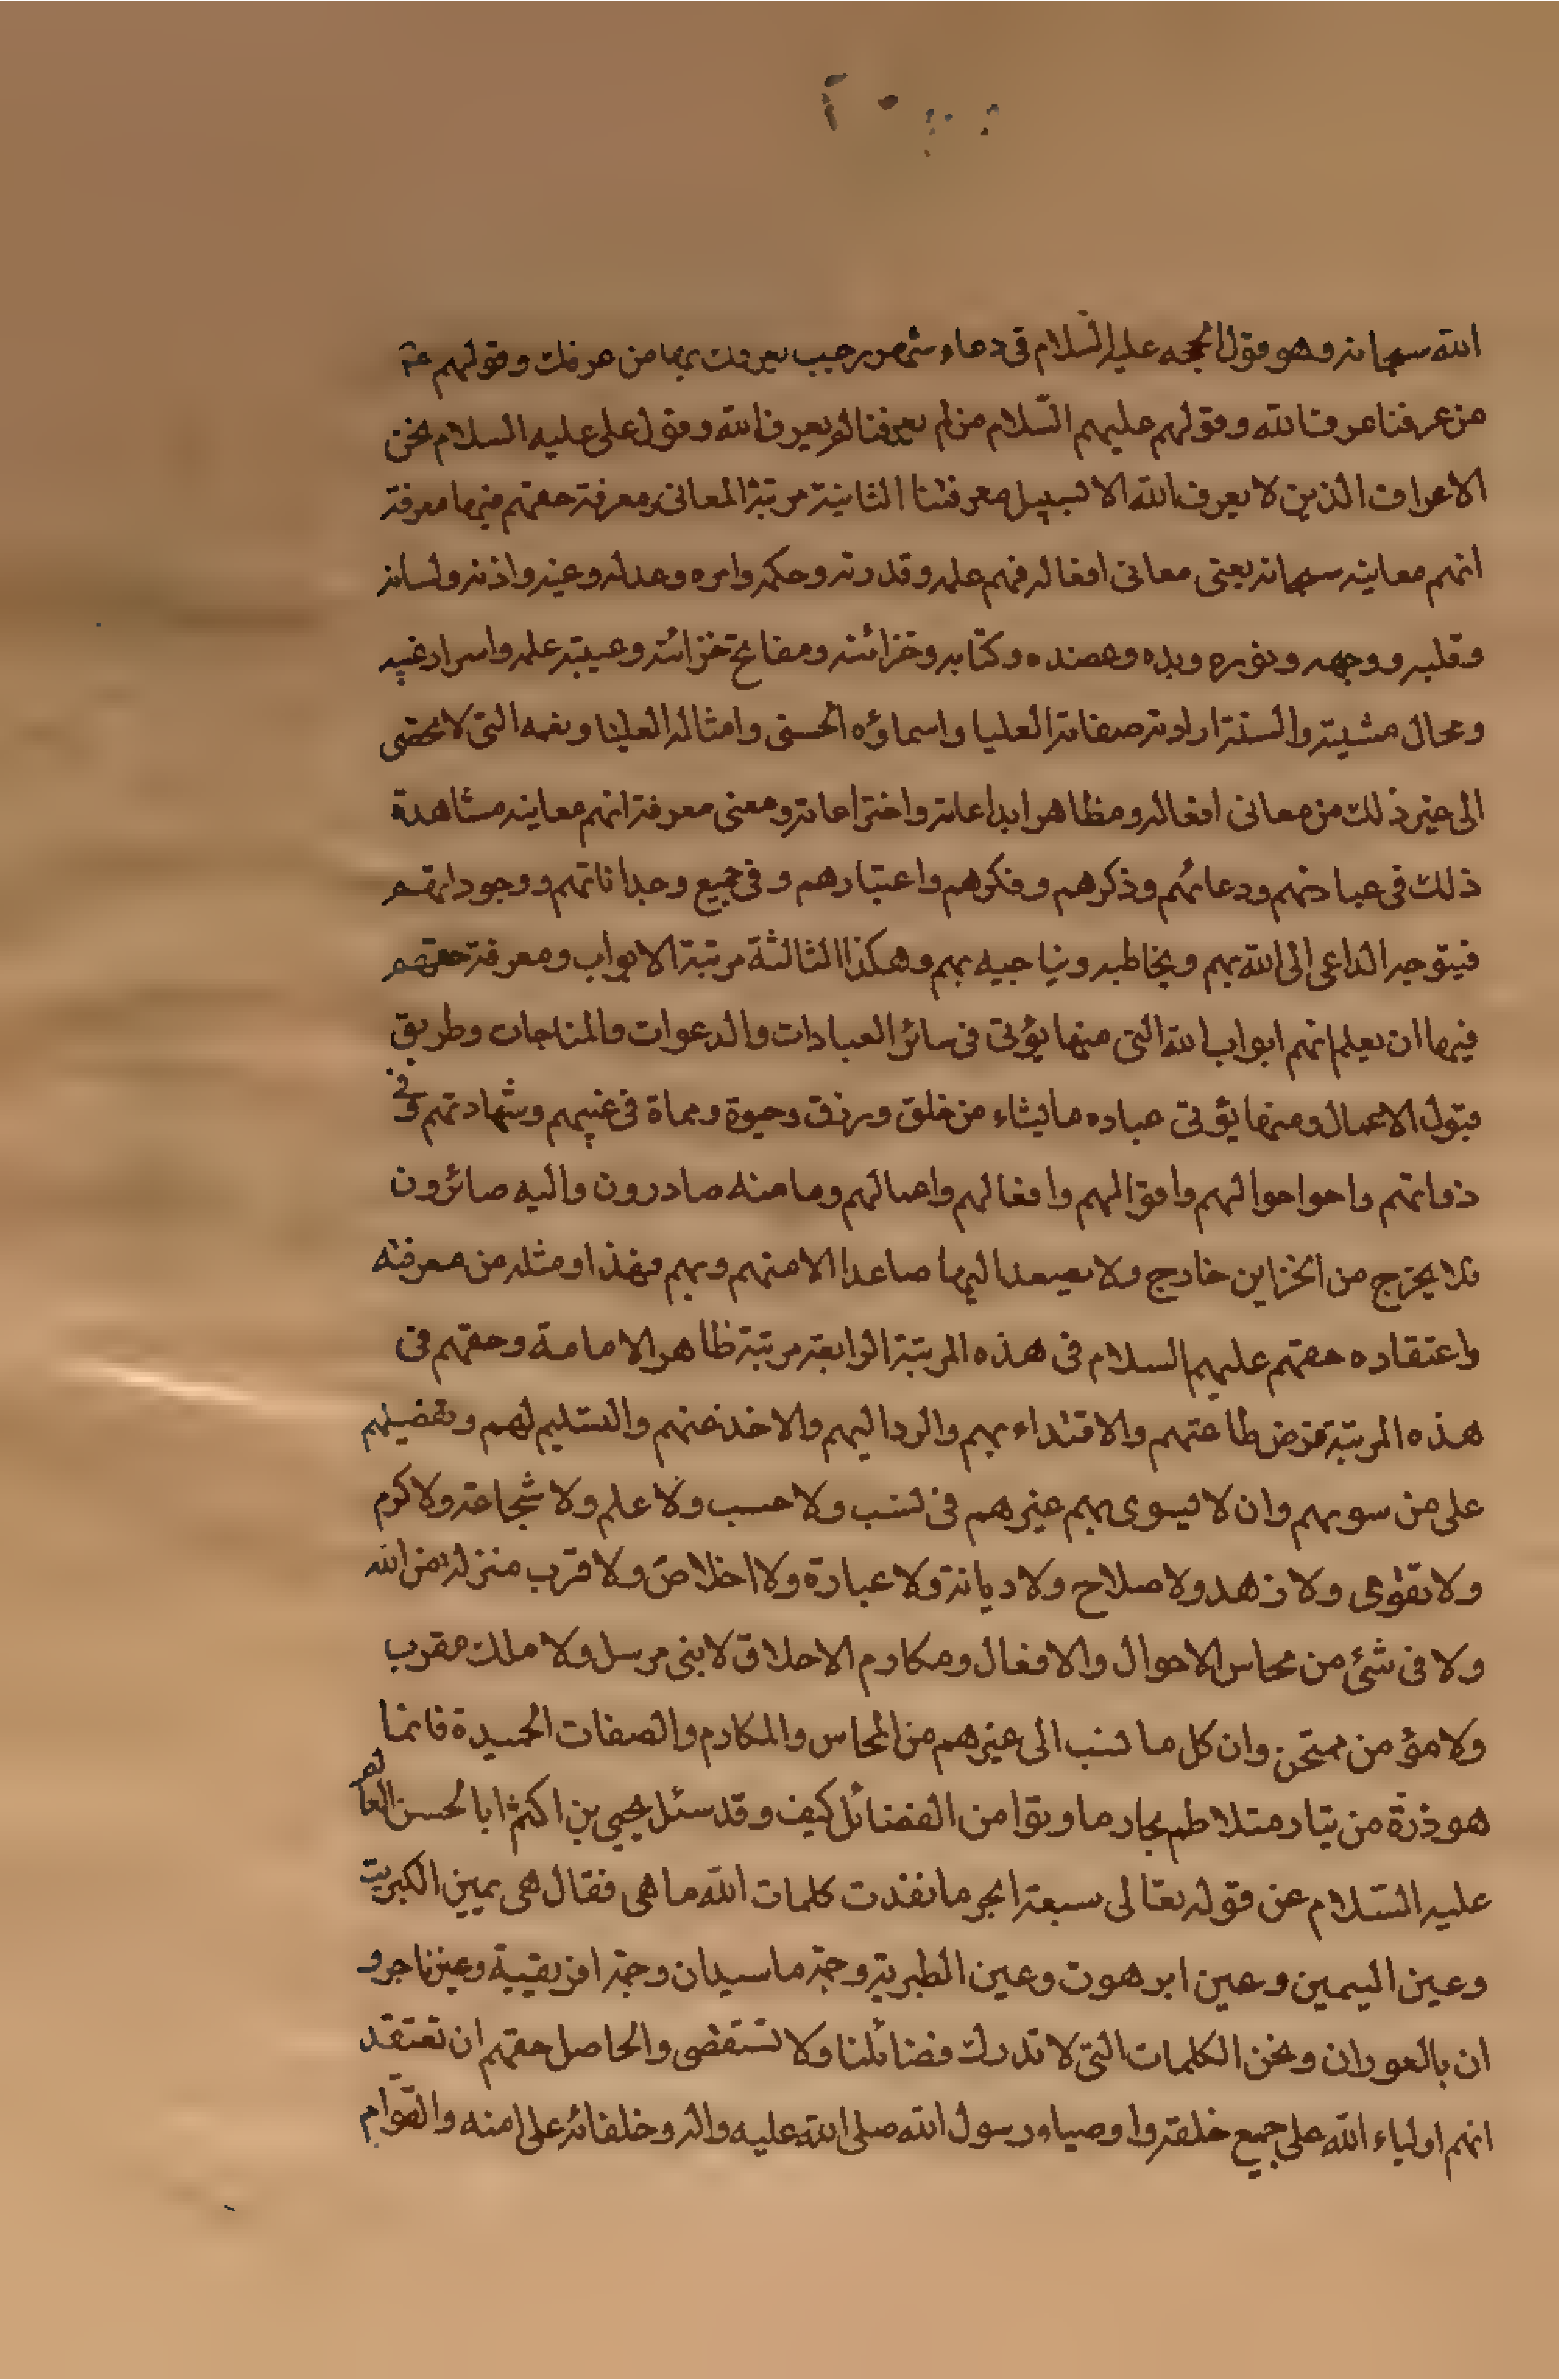 الله سبحانه وهو قول الحجه عليه السّلام فى دعاء شهر رجب يعرفك بها من عرفك وقولهم ع
من عرفنا عرف الله وقولهم عليهم السّلام من لم يعرفنا لم يعرف الله وقول على عليه السلام نحن
الاعراف الذين لا يعرف الله الا لسبيل معرفتنا الثانية مرتبة المعانى ومعرفة حقهم فيها معرفة
انهم معانيه سبحانه يعنى معانى افعاله فهم علمه وقدرته وحكمه وامره وعدله وعينه واذنه ولسانه
وقلبه ووجهه ونوره ويده وعضده وكتابه وخزائنه ومفاتح خزائنه وعيبة علمه واسرار غيبه
ومحال مشيته والسنة ارادته صفاته العليا واسماؤه الحسنى وامثاله العليا ونعمه التى لا تحصى
الى غير ذلك من معانى افعاله ومظاهر ابداعاته واختراعاته ومعنى معرفة انهم معانيه مشاهدة
ذلك فى عبادتهم ودعائهم وذكرهم وفكرهم واعتبارهم وفى جميع وجداناتهم ووجوداتهم
فيتوجه الداعى الى الله بهم ويخاطبه ويناجيه بهم وهكذا الثالثة مرتبة الابواب ومعرفة حقهم
فيها ان يعلم انهم ابواب الله التى منها يؤتى فى سائر العبادات والدعوات والمناجات وطريق
قبول الاعمال ومنها يؤتى عباده ما يشاء من خلق ورزق وحيوة ومماة فى غيبهم وشهادتهم وفى
ذواتهم واحوالهم واقوالهم وافعالهم واعمالهم وما منه صادرون واليه صائرون
فلا يخرج من الخزاين خارج ولا يصعد اليها صاعد الا منهم وبهم فهذا ومثله من معرفته
واعتقاده حقهم عليهم السلام فى هذه المرتبة الرابعة مرتبة ظاهر الامامة وحقهم فى
هذه المرتبة فرض طاعتهم والاقتداء بهم والرد اليهم والاخذ عنهم والتسليم لهم وتفضيلهم
على من سويهم وان لا يسوى بهم غيرهم فى نسب ولا حسب ولا علم ولا شجاعة ولا كرم
ولا تقوى ولا زهد ولا صلاح ولا ديانة ولا عبادة ولا اخلاص ولا قرب منزلة من الله
ولا فى شئ من محاسن الاحوال والافعال ومكارم الاخلاق لا بنى مرسل ولا ملك مقرب
ولا مؤمن ممتحن وان كل ما نسب الى غيرهم من المحاسن والمكارم والصفات الحميدة فانما
هو ذرة من تيار متلاطم بحار ما اوتوا من الفضائل كيف وقد سئل يحيى بن اكثم ابا الحسن العالم
عليه السّلام عن قوله تعالى سبعة ابحر ما نفدت كلمات الله ما هى فقال هى عين الكبريت
وعين اليمين وعين ابرهوت وعين الطبرية وحمة ماسيدان وحمة افريقية وعين ناجرو
ان بالعوران ونحن الكلمات التى لا تدرك فضائلنا ولا تستقضى والحاصل حقهم ان تعتقد
انهم اولياء الله على جميع خلقه واوصياء رسول الله صلى الله عليه واله وخلفائه على امته والقوّام